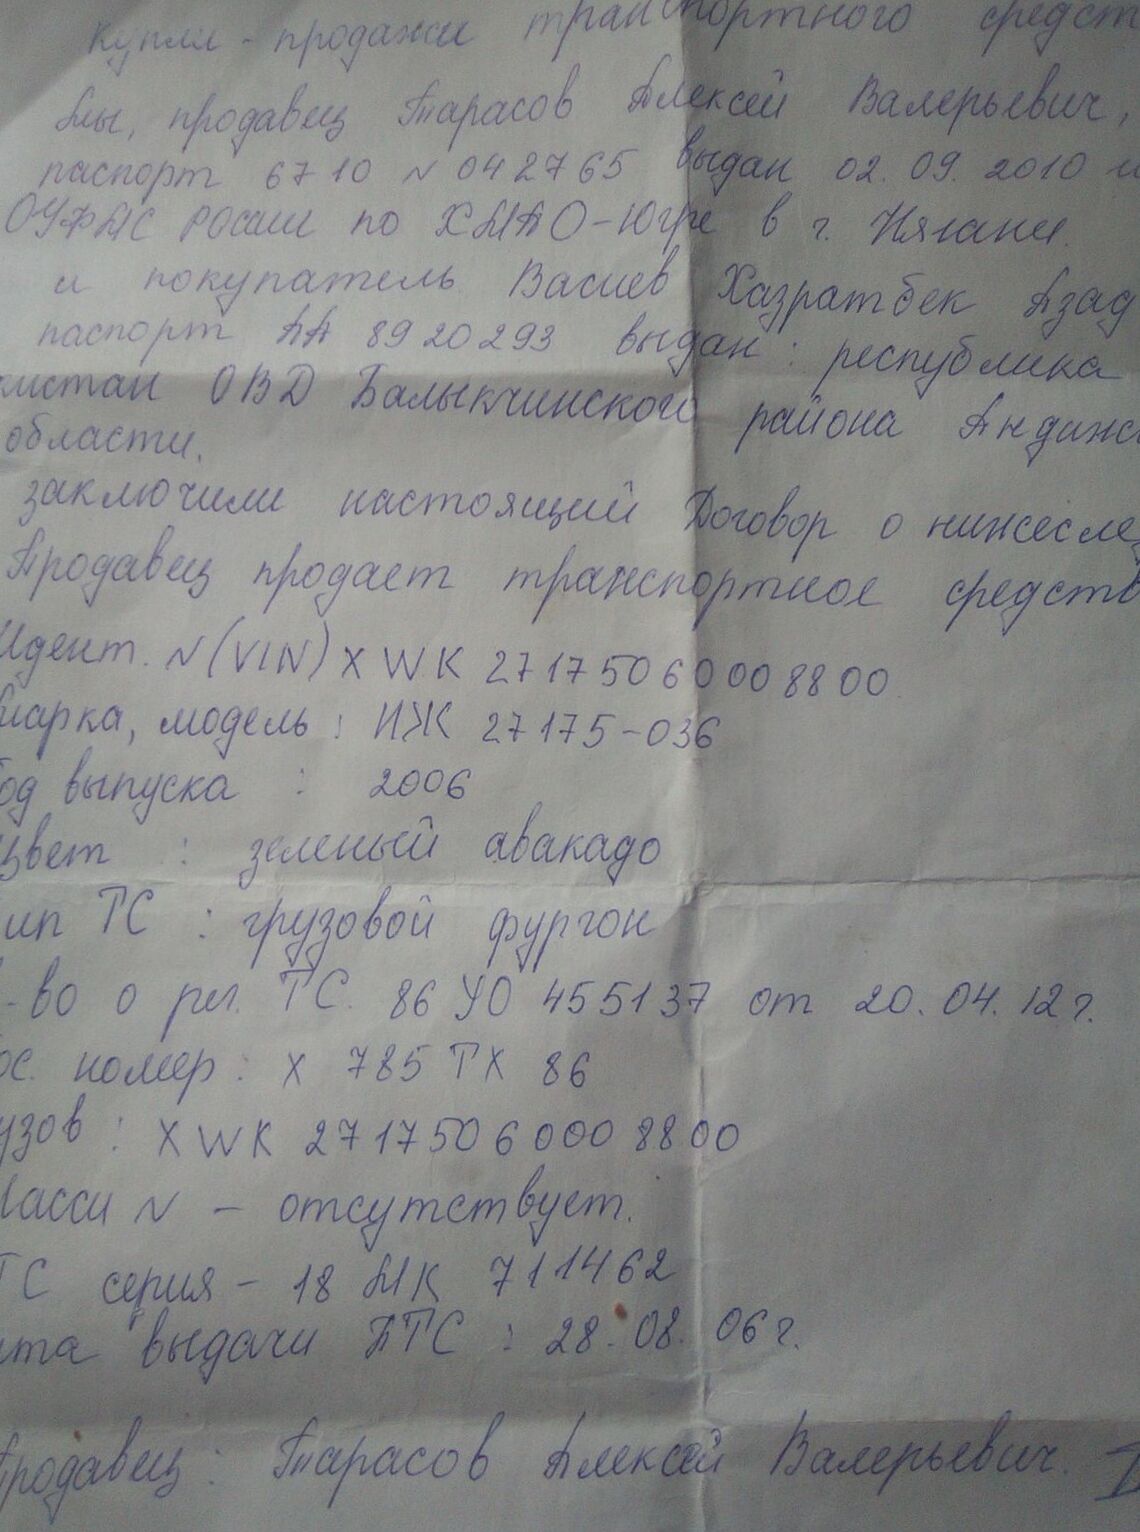 купли-продажи транспортного средст
Мы, продавец Тарасов Алексей Валерьевич,
паспорт 6710 N 042765 выдан 02.09.2010
ОУФМС России по ХМАО-Югре в г. Нягани.
и покупатель Васиев Хазратбек Азад
паспорт АА 8920293 выдан: республика
кистан ОВД Балыкчинского района Андижа
области.
заключили настоящий Договор о нижеслед
Продавец продает транспортное средств
Идент. N (VIN) X WK 27175060008800
марка, модель: ИЖ 27175-036
год выпуска : 2006
цвет : зеленый авакадо
ип ТС : грузовой фургон
-во о рег. ТС. 86 УО 455137 от 20.04.12г.
ос. номер: Х 785 ТХ 86
узов : XWK 27175060008800
Шасси N - отсутствует.
ТС серия - 18 МК 711462
ата выдачи ПТС : 28.08.06г.
Продавец: Тарасов Алексей Валерьевич.